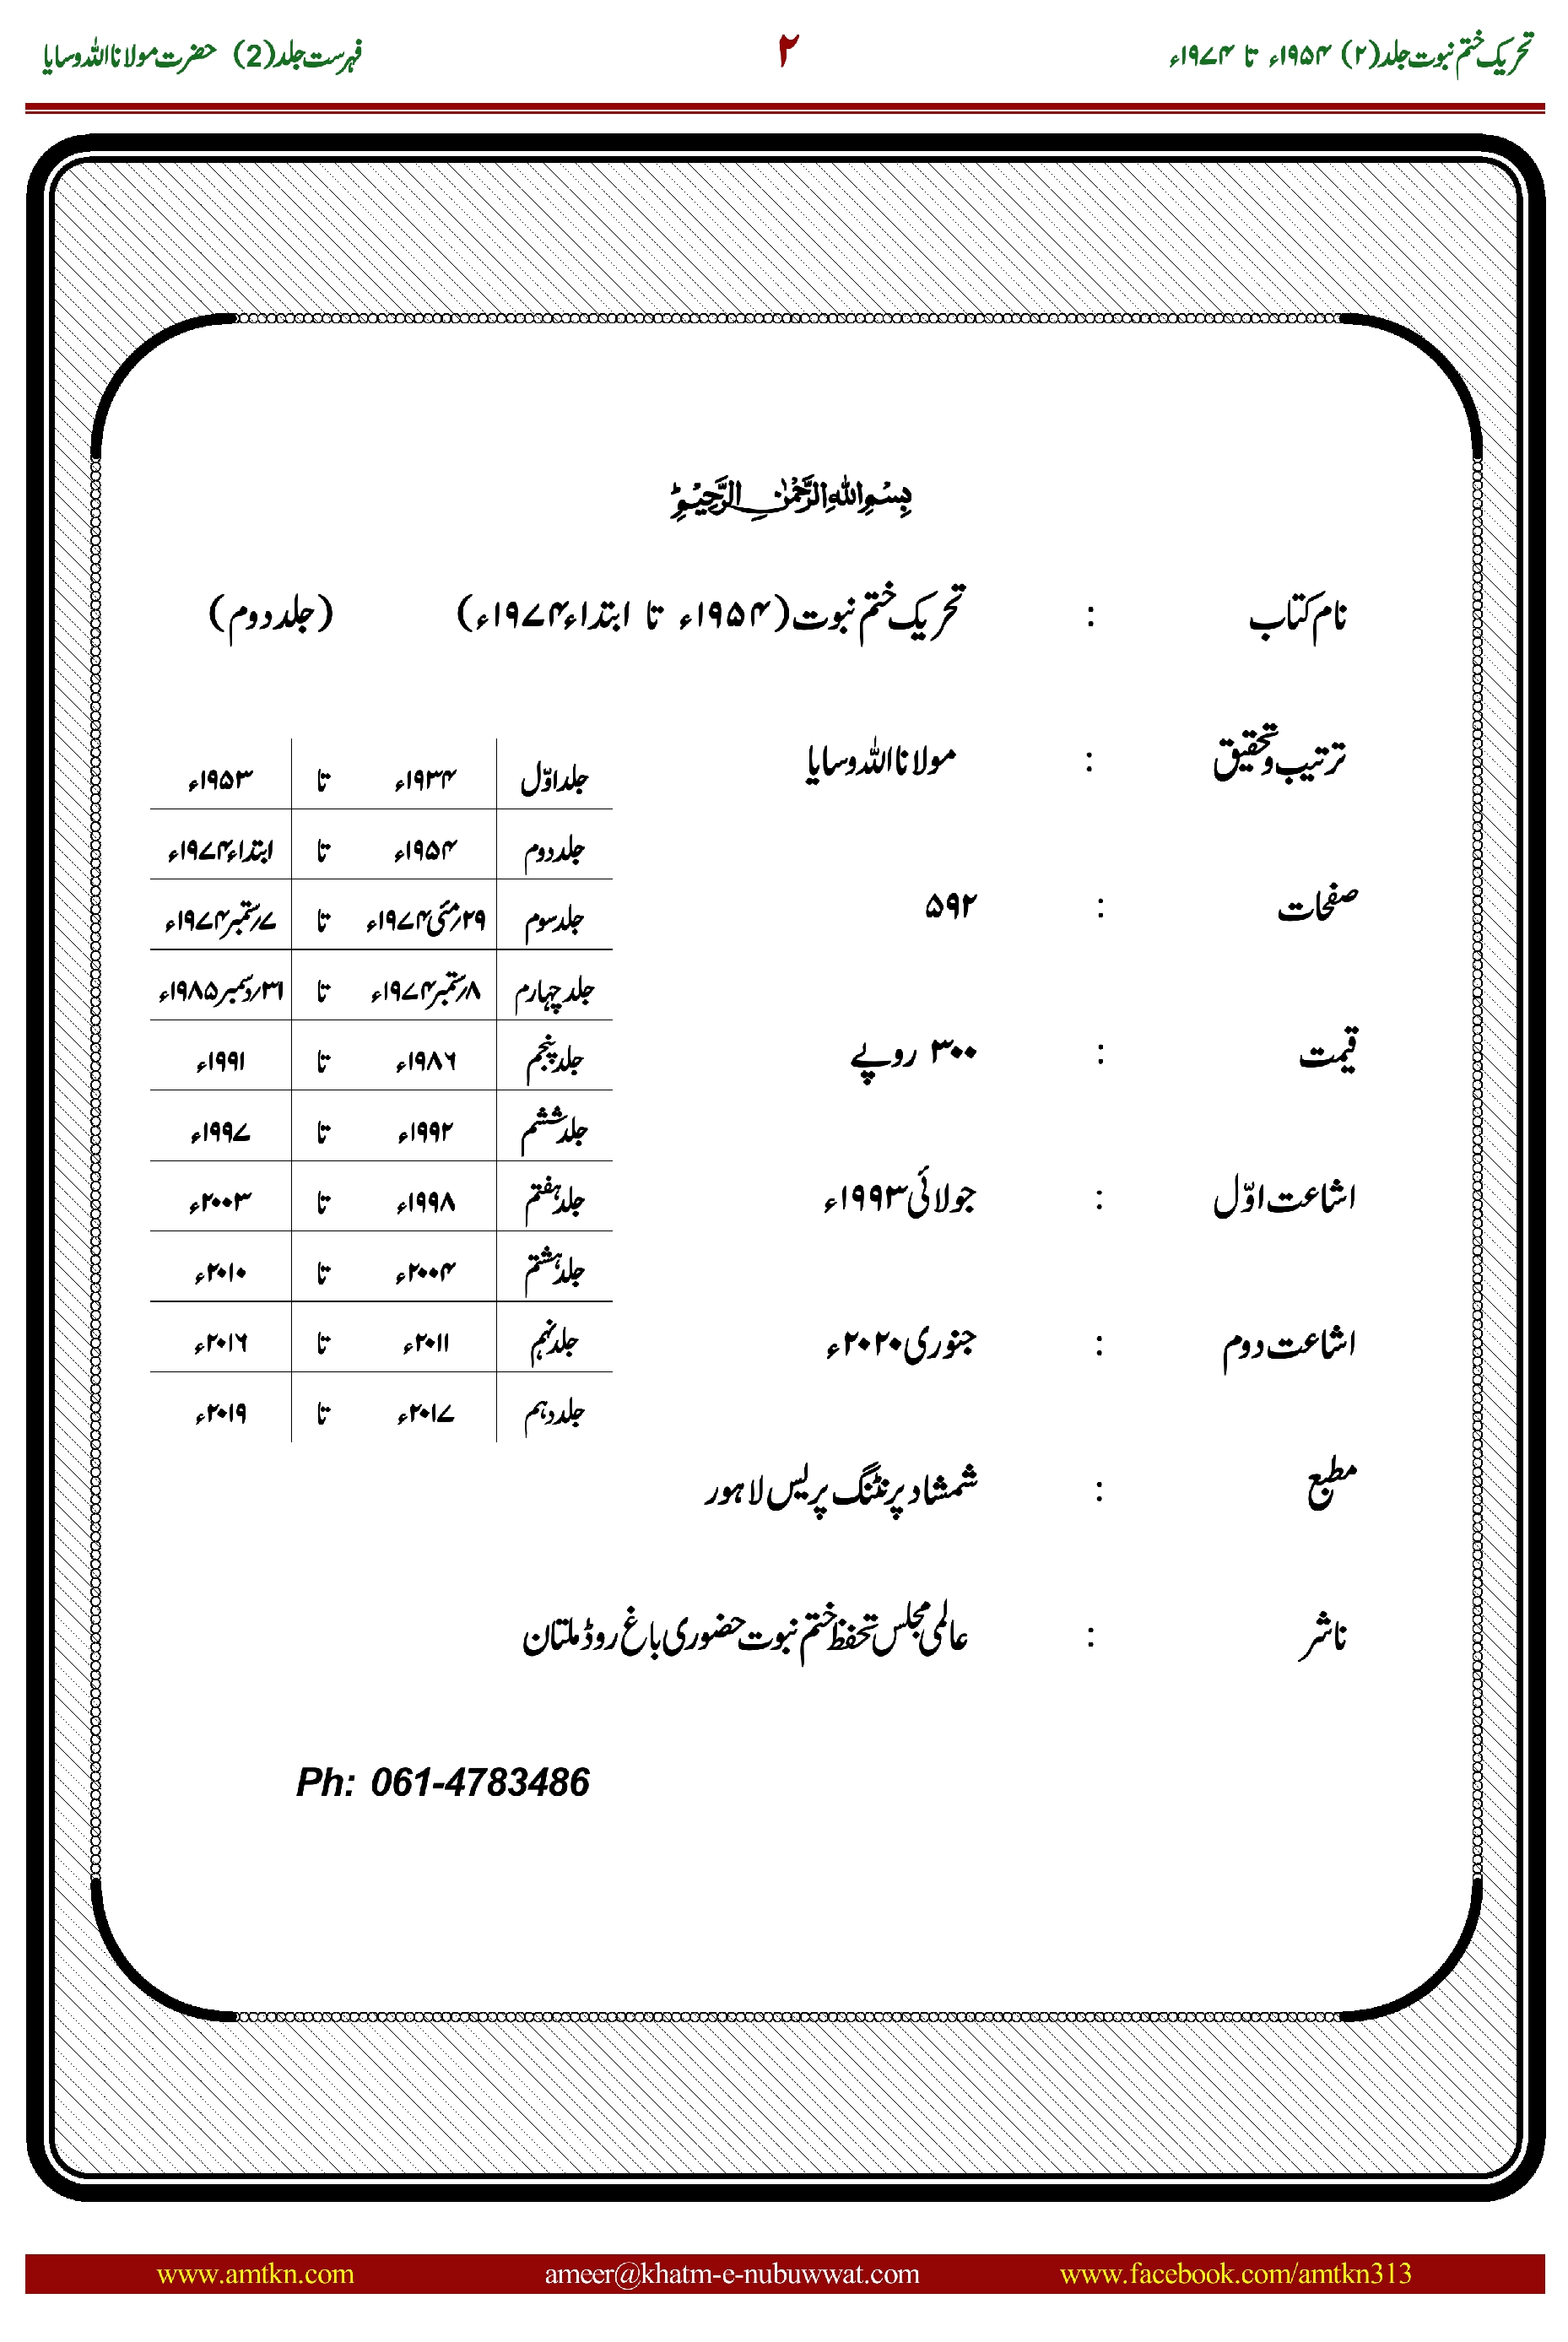 تحریک ختم نبوت جلد(۲) ۱۹۵۴ء تا ۱۹۷۴ء ۲ فہرست جلد(2) حضرت مولانا اللہ وسایا
بِسْمِ اللّٰهِ الرَّحْمٰنِ الرَّحِيْمِ
نام کتاب : تحریک ختم نبوت (۱۹۵۴ء تا ابتداء ۱۹۷۴ء) (جلد دوم)
ترتیب و تحقیق : مولانا اللہ وسایا
صفحات : ۵۹۲
قیمت : ۳۰۰ روپے
اشاعت اوّل : جولائی ۱۹۹۳ء
اشاعت دوم : جنوری ۲۰۲۰ء
مطبع : شمشاد پرنٹنگ پریس لاہور
ناشر : عالمی مجلس تحفظ ختم نبوت حضوری باغ روڈ ملتان
Ph: 061-4783486
جلد اوّل ۱۹۳۴ء تا ۱۹۵۳ء
جلد دوم ۱۹۵۴ء تا ابتداء ۱۹۷۴ء
جلد سوم ۲۹؍مئی ۱۹۷۴ء تا ۷؍ستمبر ۱۹۷۴ء
جلد چہارم ۸؍ستمبر ۱۹۷۴ء تا ۳۱؍دسمبر ۱۹۸۵ء
جلد پنجم ۱۹۸۶ء تا ۱۹۹۱ء
جلد ششم ۱۹۹۲ء تا ۱۹۹۷ء
جلد ہفتم ۱۹۹۸ء تا ۲۰۰۳ء
جلد ہشتم ۲۰۰۴ء تا ۲۰۱۰ء
جلد نہم ۲۰۱۱ء تا ۲۰۱۶ء
جلد دہم ۲۰۱۷ء تا ۲۰۱۹ء
www.amtkn.com ameer@khatm-e-nubuwwat.com www.facebook.com/amtkn313